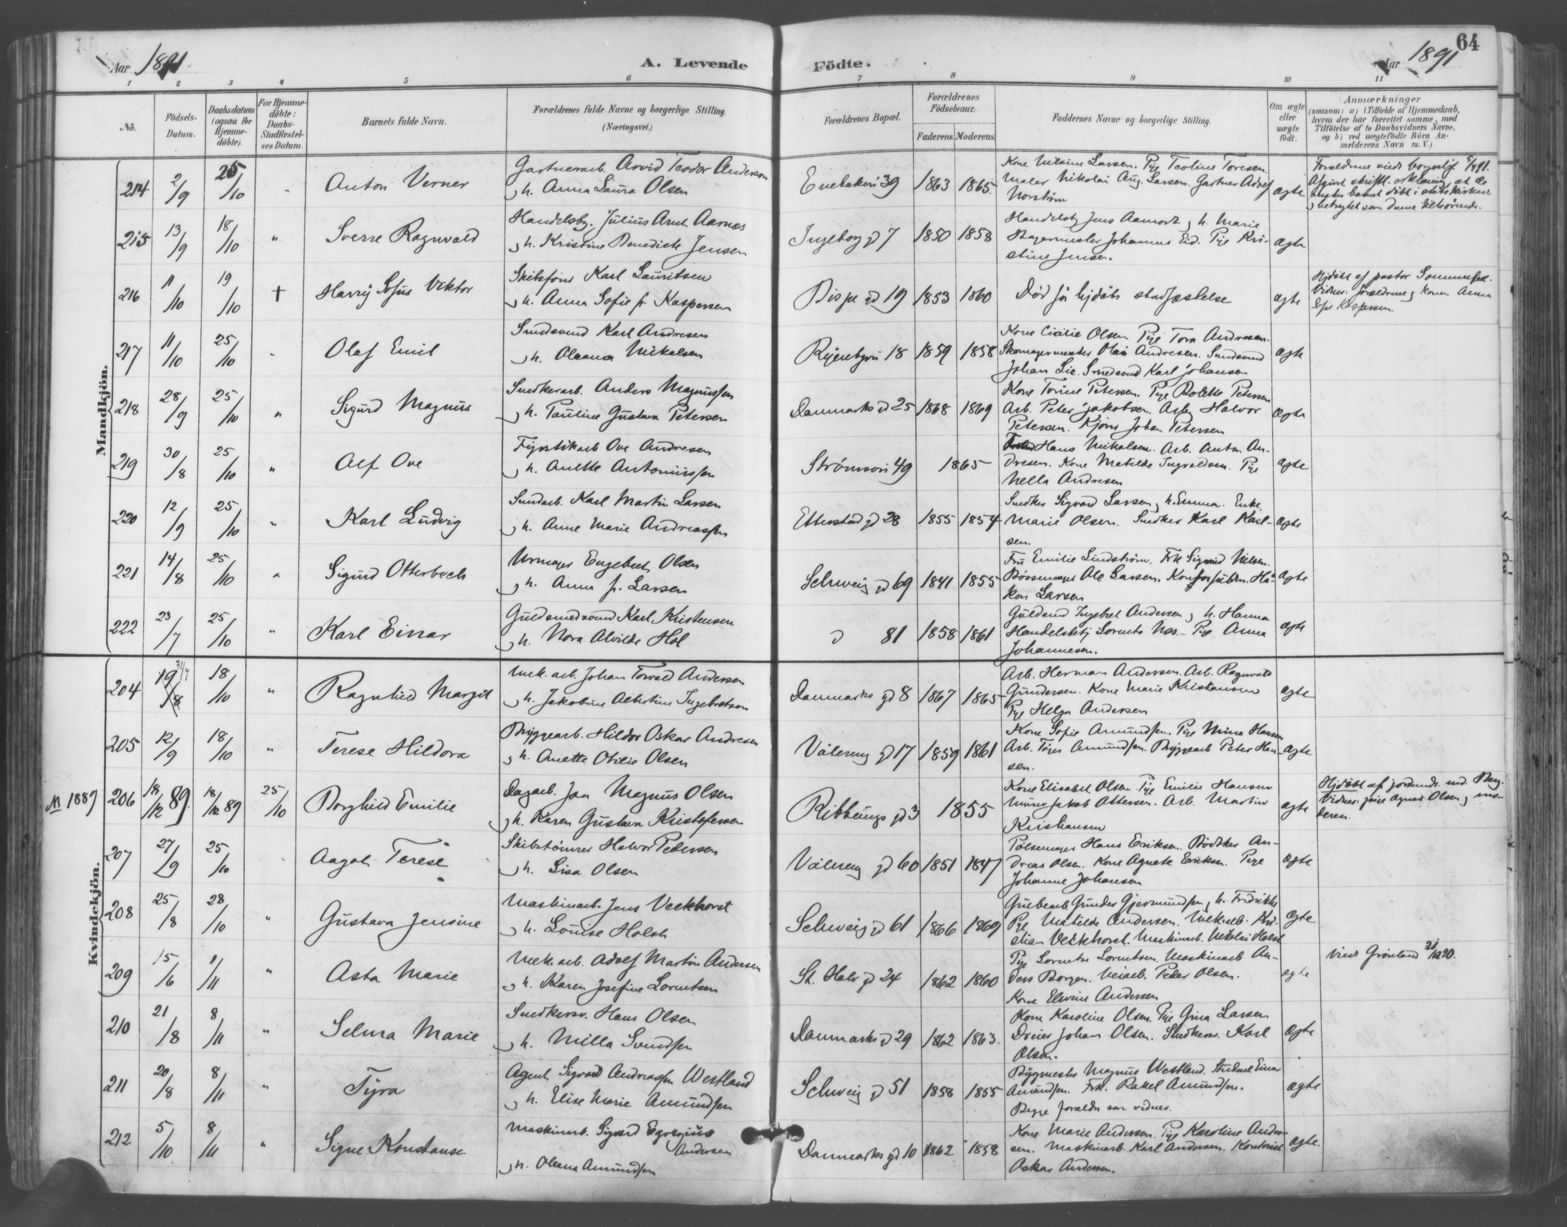 64
Aar 1891
A. Levende
Födte.
Aar 1891
1 2 3 4 5 6 7 8 9 10 11
No.
Födsels-
Datum.
Daabsdatum
(ogsaa for
Hjemme-
döbte).
For Hjemme-
döbte:
Daabs-
Stadfæstel-
ses Datum.
Barnets fulde Navn.
Forældrenes fulde Navne og borgerlige Stilling.
(Næringsvei.)
Forældrenes Bopæl.
Forældrenes
Födselsaar.
Faderens. Moderens.
Faddernes Navne og borgerlige Stilling.
Om ægte
eller
uægte
födt.
Anmærkninger
(saasom: a) i Tilfælde af Hjemmedaab,
hvem der har forrettet samme, med
Tilföielse af to Daabsvidners Navne,
og b) ved uægtefödte Börn An-
melderens Navn m.V.)
Mandkjön.
214 2/9 25/10 " Anton Verner
Gartnerarb. Arvid Teodor Anderson
og h. Anna Laura Olsen
Enebakv 39 1863 1865
Kone Nilsine Larsen. Pige Teoline Toresen
Maler Nikolai Aug. Larsen. Gartner Adolf
Norström
ægte
215 13/9 18/10 " Sverre Ragnvald
Handelsbg. Julius Amt Aarnæs
og h. Kristine Benedicte Jensen
Ingeborg gd 7 1850 1858
Handelsbg Jens Aamodt og h. Marie
Bagermester Johannes Eid. Pige Kri-
stine Jensen.
ægte
216 11/10 19/10 † Harry Sofus Viktor
Skibsförer Karl Lauritsen
og h. Anna Sofie f. Kaspersen
Bispe gd 19 1853 1860
Död för hjdöbs stadfæstelse
ægte
Hjdöbt af pastor Sommerfelt.
Vidner: forældrene og konen Anna
Sofie Kaspersen.
217 11/10 25/10 " Olaf Emil
Smedsvend Karl Andresen
og h. Oleana Nikolsen
Ryenbgvn 18 1859 1858
Kone Cicilie Olsen Pige Tora Andresen.
Skomagermester Olai Andresen. Smedsvend
Johan Lie. Smedsvend Karl Johansen
ægte
218 28/9 25/10 " Sigurd Magnus
Snedkerarb. Anders Magnussen
og h. Pauline Gustava Petersen
Danmarks gd 25 1868 1869
Kone Torine Petersen. Pige Bolette Petersen
Arb. Peter Jakobsen. Arb. Halvor
Petersen. Kjörer Johan Petersen
ægte
219 30/8 25/10 " Alf Ove
Fyrstikarb Ove Andresen
og h. Anette Antoniussen
Strömsvn 49 1865
Hans Nikolsen. Arb. Anton An-
dresen. Kone Matilde Ingvaldsen. Pige
Nella Andresen
ægte
220 12/9 25/10 " Karl Ludvig
Smedarb. Karl Martin Larsen
og h. Anne Marie Andreassen
Etterstad gd 28 1855 1854
Snedker Sigvard Larsen og h. Emma. Enke
Marie Olsen. Snedker Karl Karl-
sen.
ægte
221 14/8 25/10 " Sigurd Otterbech
Urmager Engebret Olsen
og h. Anna f. Larsen
Schweig gd 69 1841 1855
Fru Emilie Lindström. Frk Sigrid Nilsen.
Börsemager Ole Larsen. Ha-
kon Larsen
ægte
222 23/7 25/10 " Karl Einar
Guldsmedsvend Karl Kristensen
og h. Nora Alvilde Hol
" 81 1858 1861
Guldsmd Ingebret Andersen og h. Hanna
Handelsbtj Lorents Næs. Pige Anna
Johannesen.
ægte
Kvindekjön.
204 19/8 31/7 18/10 " Ragnhild Margit
Mek. arb. Johan Torvald Andersen
og h. Jakobine Albertine Ingebretsen
Danmarks gd 8 1867 1865
Arb. Herman Andersen. Arb. Ragnvald
Gundersen. Kone Marie Kristiansen
Pige Helga Andersen
ægte
205 12/9 18/10 " Terese Hildora
Bryggearb. Hildor Oskar Andresen
og h. Anette Otilie Olsen
Vålereng gd 17 1859 1861
Kone Sofie Amundsen. Pige Mina Hansen
Arb. Tores Amundsen. Bryggearb Peter Han-
sen.
ægte
№ 1889 206 18/12 89 18/12 89 25/10 Borghild Emilie
Dagarb. Jan Magnus Olsen
og h. Karen Gustava Kristofersen
Ribbeungs gd 3 1855
Kone Elisabet Olsen Pige Emilie Hansen
Murer Jakob Ottersen. Arb. Martin
Kristiansen
ægte
Hjdöbt af jordmdr. md Haug.
Vidner: pige Agnes Olsen og mo-
deren.
207 27/9 25/10 Aagot Terese
Skibstömrer Halvor Pedersen
og h. Lisa Olsen
Vålereng gd 60 1851 1847
Pölsemager Hans Eriksen. Bödker An-
dreas Olsen. Kone Agnete Eriksen. Pige
Johanne Johansen
ægte
208 25/8 28/10 " Gustava Jensine
Maskinarb. Jens Veckhorst
og h. Louise Holst
Schweig gd 61 1866 1869
Grubearb Gunder Gjermundsen og h. Fredrikke
Pige Matilde Andersen. Mek.arb. Kri-
stian Veckhorst. Maskinarb. Nikolai Holst
ægte
209 15/6 1/11 " Asta Marie
Mek. arb. Adolf Martin Andersen
og h. Karen Josefine Lorentsen
St. Halv. gd 24 1862 1860
Pige Lorentse Lorentsen. Maskinarb An-
ders Borgen. Peter Olsen.
Kone Elevine Andersen
ægte
viede Grönland 21/12 90.
210 21/8 8/11 " Selma Marie
Snedkersv. Hans Olsen
og h. Milla Svendsen
Danmarks gd 29 1862 1863.
Kone Karoline Olsen. Pige Gina Larsen
Dreier Johan Olsen. Snedkersv. Karl
Olsen.
ægte
211 20/8 8/11 " Tyra
Agent Sigvard Andreassen Westland
og h. Elise Marie Amundsen
Schweig gd 51 1858 1855
Bygmester Magnus Westland. Einar
Amundsen. Frk. Rakel Amundsen.
Begge forældre var vidner.
ægte
212 5/10 8/11 " Signe Konstanse
Maskinarb. Sigvard Egregius
Andersen
og h. Oleana Amundsen
Danmarks gd 10 1862 1858
Kone Marie Andersen. Pige Karoline Ander-
sen. Maskinarb. Karl Andersen. Kontorist
Oskar Andersen.
ægte